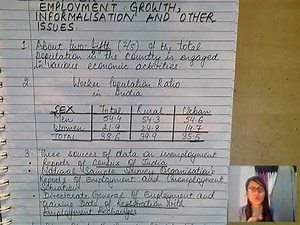 EMPLOYMENT GROWTH,
INFORMALISATION AND OTHER
ISSUES
1. About two-fifth (2/5) of the total
population in the country is engaged
in various economic activities.
2. Worker Population Ratio
in India
SEX Total Rural Urban
Men 54.4 54.3 54.6
Women 21.9 24.8 14.7
TOTAL 38.6 39.9 35.5
3. Three sources of data on unemployment
• Reports of Census of India
• National Sample Survey Organisation's
Reports of Employment and Unemployment
Situation
• Directorate General of Employment and
Training Data of Registration with
Employment Exchanges